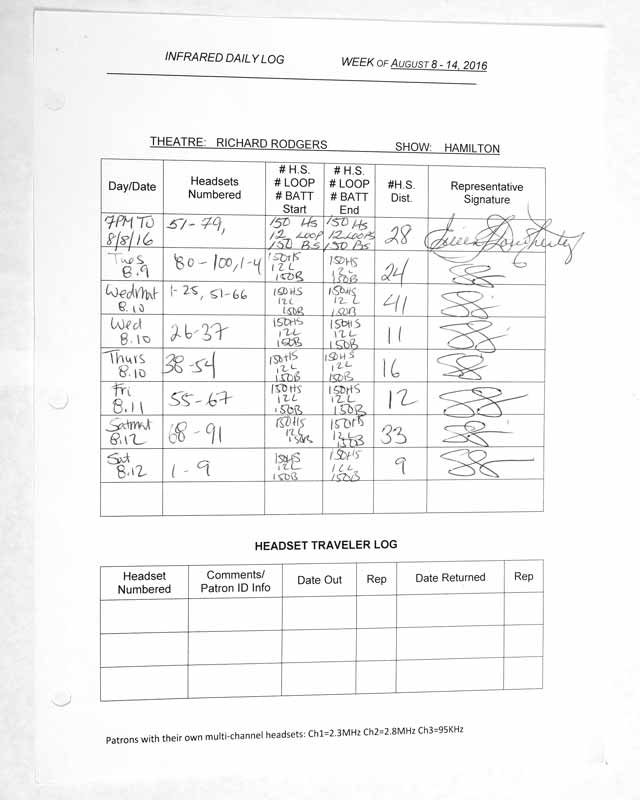 INFRARED DAILY LOG WEEK OF AUGUST 8 - 14, 2016
THEATRE: RICHARD RODGERS SHOW: HAMILTON
Day/Date Headsets Numbered # H.S. # LOOP # BATT Start # H.S. # LOOP # BATT End #H.S. Dist. Representative Signature
7PM TO 8/8/16 51-79, 150 HS 12 LOOP 150 BS 150 HS 12 LOOPS 150 BS 28
Tues 8.9 80-100, 1-4 150HS 12L 150B 150HS 12L 150B 24
Wedmat 8.10 1-25, 51-66 150HS 12L 150B 150HS 12L 150B 41
Wed 8.10 26-37 150HS 12L 150B 150HS 12L 150B 11
Thurs 8.10 38-54 150HS 12L 150B 150HS 12L 150B 16
Fri 8.11 55-67 150HS 12L 150B 150HS 12L 150B 12
Satmat 8.12 68-91 150HS 12L 150B 150HS 12L 150B 33
Sat 8.12 1-9 150HS 12L 150B 150HS 12L 150B 9
HEADSET TRAVELER LOG
Headset Numbered Comments/ Patron ID Info Date Out Rep Date Returned Rep
Patrons with their own multi-channel headsets: Ch1=2.3MHz Ch2=2.8MHz Ch3=95KHz